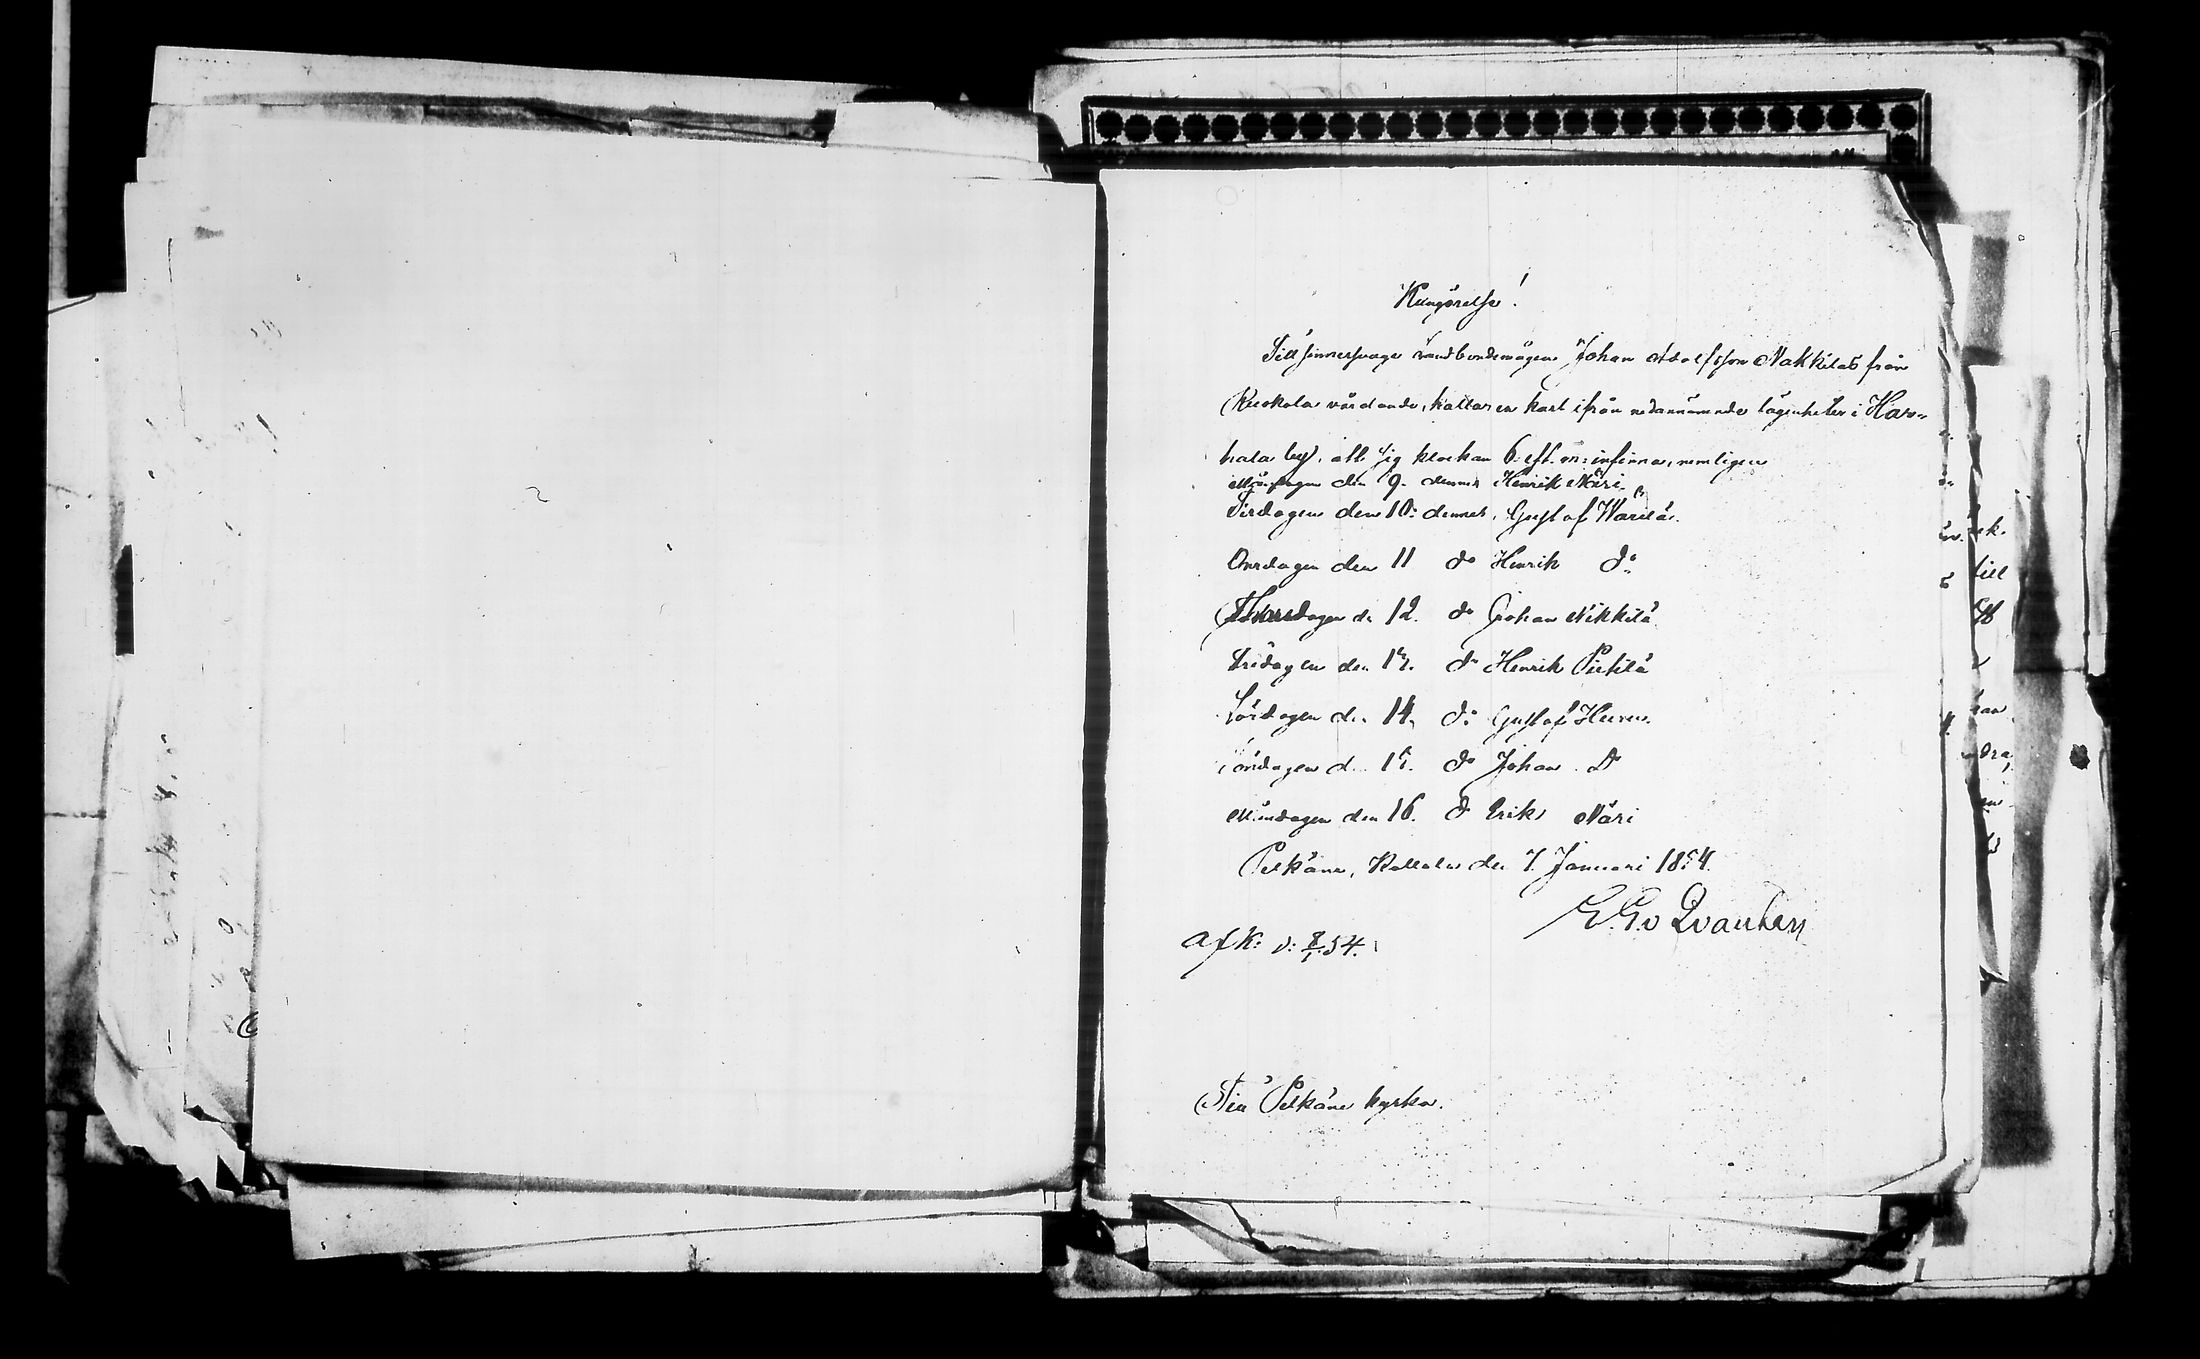 Kungörelse!
Till sinnessvage bondemågen Johan Adolfsson Nakkilas från
Ruokola vårdande, kallas en karl ifrån nedannämnde lägenheter i Har-
hala by, att sig klockan 6 eft. m: infinna, nemligen
Måndagen den 9. dennes Henrik Näri.
Tisdagen den 10: dennes, Gustaf Warila.
Onsdagen den 11 do Henrik do
Thorsdagen d. 12. do Johan Nikkilä
Fredagen den 13. do Henrik Pietilä
Lördagen d. 14. do Gustaf
Söndagen d. 15. do Johan do
Måndagen den 16. do Erik Näri
Pelkäne, den 7. Januari 1854.
E. G. v Qvanten
Afk: d: 8/1 54.
Till Pelkäne kyrka.